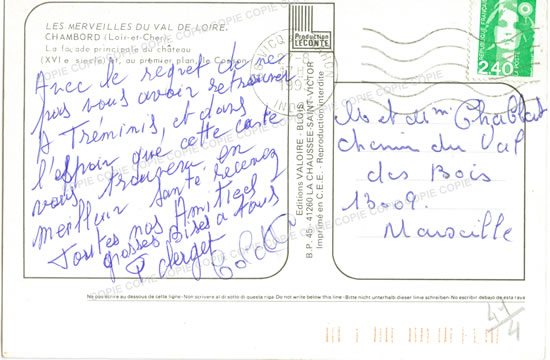 LES MERVEILLES DU VAL DE LOIRE.
CHAMBORD (Loir-et-Cher)
La façade principale du château
(XVI e siècle) et, au premier plan, le Cosson
Production
LECONTE
RÉPUBLIQUE FRANÇAISE
2,40
Avec le regret de ne
pas vous avoir retrouver
A Tréminis, et dans
l'espoir que cette carte
vous trouvera en
meilleur santé recevez
Toutes nos Amitiés
grosses Bises a tous
Clerget
Editions VALOIRE - BLOIS
B.P. 45 - 41260 LA CHAUSSÉE-SAINT-VICTOR
Imprimé en C.E.E. - Reproduction interdite
M et Mm Chabbat
Chemin du Val
des Bois
13009.
Marseille
Ne pas écrire au-dessous de cette ligne - Non scrivere al di sotto di questa riga - Do not write below this line - Bitte nicht unterhalb dieser linie schreiben - No escribir debajo de esta raya
COPIE COPIE COPIE COPIE